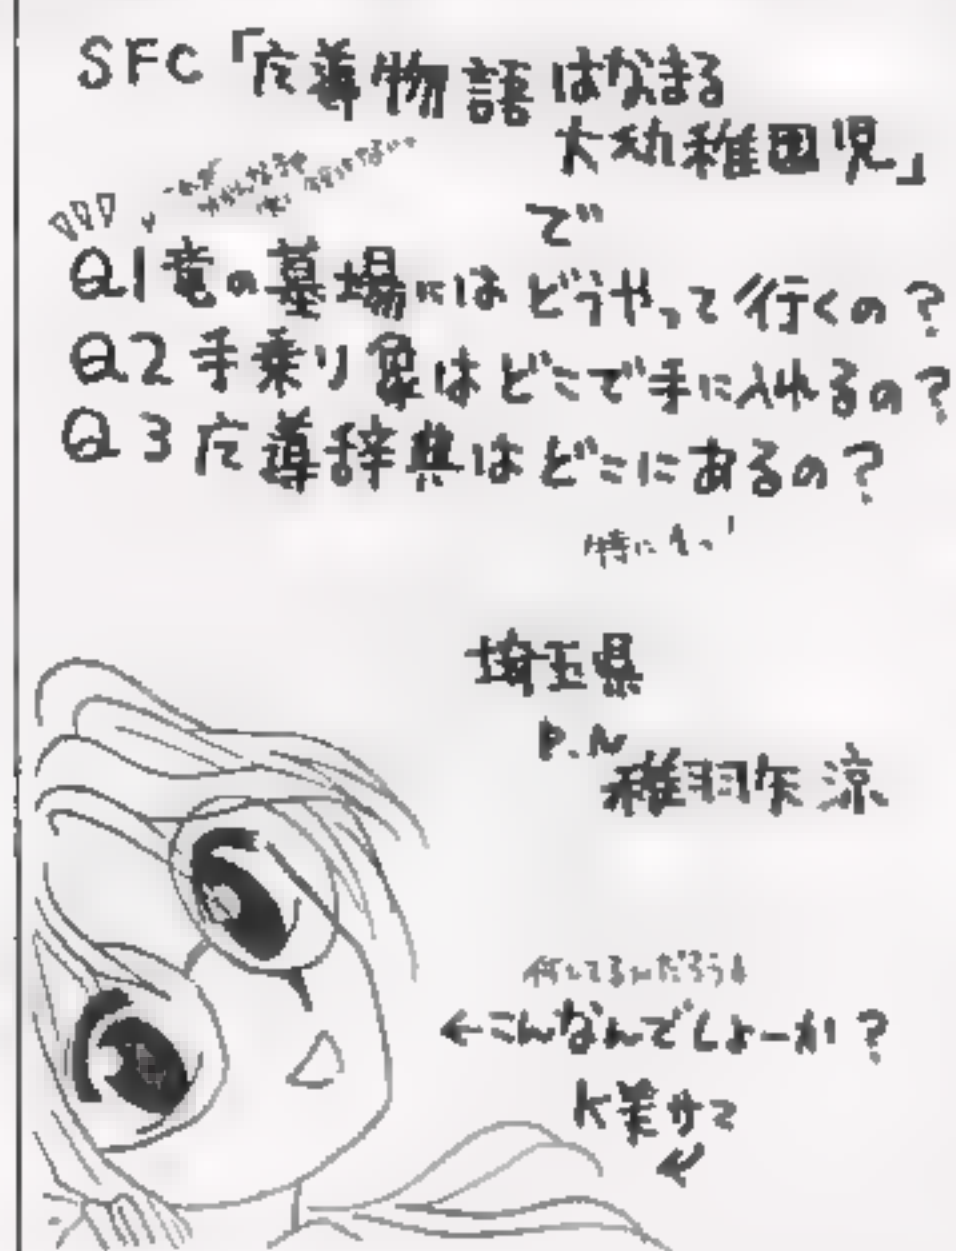 SFC「広導物語 はなまる
大幼稚園児」
で
Q1 竜の墓場にはどうやって行くの?
Q2 手乗り象はどこで手に入れるの?
Q3 広導辞典はどこにあるの?
特に
埼玉県
P.N
稚羽矢 涼
何してるんだろう
←こんなんでしょーか?
K美サマ